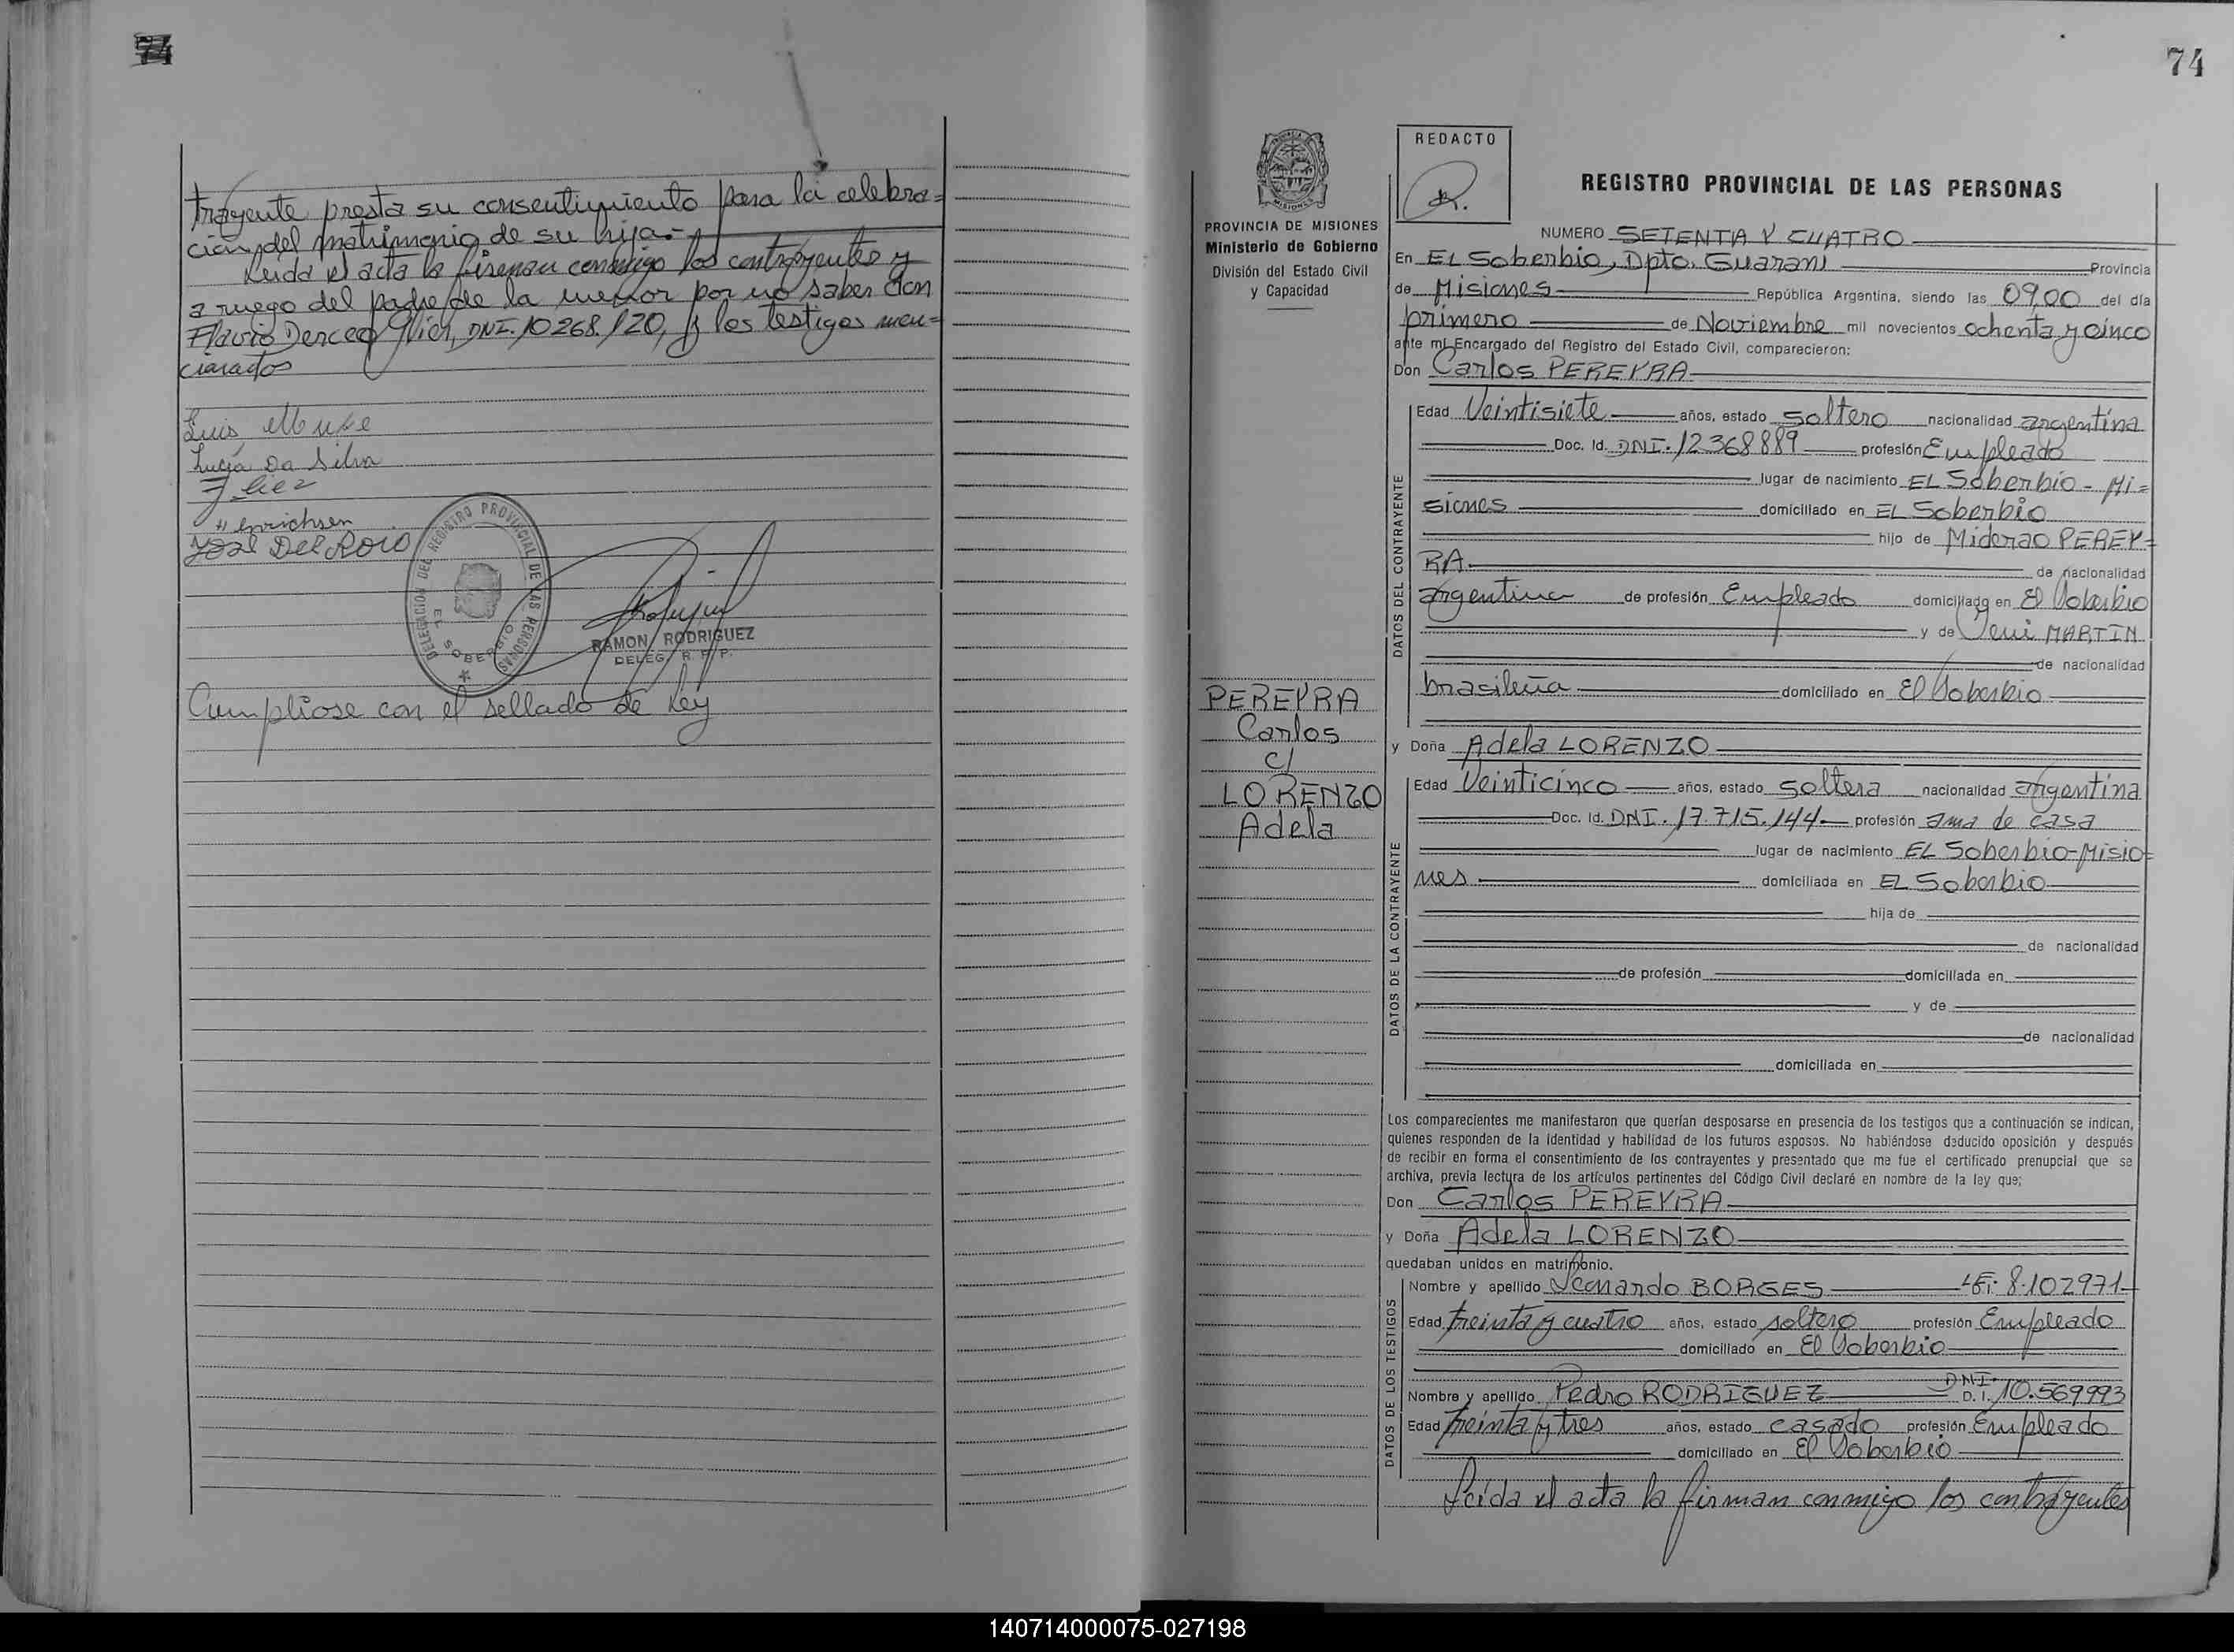 74
trayente presta su consentimiento para la celebra=
ción del matrimonio de su hija.-
Leida el acta la firman conmigo los contrayentes y
a ruego del padre de la menor por no saber don
Flavio Derceo Glier, DNI. 10268.120, y los testigos men=
cionados
Luis
Lucía Da Silva
Hinrichsen
José Del Roio
DELEGACION DEL REGISTRO PROVINCIAL DE LAS PERSONAS
EL SOBERBIO
RAMON RODRIGUEZ
DELEG. R. P. P.
Cumpliose con el sellado de Ley
74
PROVINCIA DE MISIONES
Ministerio de Gobierno
División del Estado Civil
y Capacidad
PEREYRA
Carlos
c/
LORENZO
Adela
REDACTO
REGISTRO PROVINCIAL DE LAS PERSONAS
NUMERO SETENTA Y CUATRO
En EL Soberbio, Dpto. Guaraní Provincia
de Misiones República Argentina, siendo las 09,00 del día
primero de Noviembre mil novecientos ochenta y cinco
ante mí Encargado del Registro del Estado Civil, comparecieron:
Don Carlos PEREYRA
DATOS DEL CONTRAYENTE
Edad Veintisiete años, estado soltero nacionalidad argentina
Doc. Id. DNI. 12368889 profesión Empleado
lugar de nacimiento EL Soberbio - Mi=
siones domiciliado en EL Soberbio
hijo de Miderao PEREY=
RA de nacionalidad
argentina de profesión Empleado domiciliado en El Soberbio
y de Jeni MARTIN
de nacionalidad
brasileña domiciliado en El Soberbio
y Doña Adela LORENZO
DATOS DE LA CONTRAYENTE
Edad Veinticinco años, estado soltera nacionalidad argentina
Doc. Id. DNI. 17.715.144 profesión ama de casa
lugar de nacimiento EL Soberbio-Misio=
nes domiciliada en EL Soberbio
hija de
de nacionalidad
de profesión domiciliada en
y de
de nacionalidad
domiciliada en
Los comparecientes me manifestaron que querían desposarse en presencia de los testigos que a continuación se indican,
quienes responden de la identidad y habilidad de los futuros esposos. No habiéndose deducido oposición y después
de recibir en forma el consentimiento de los contrayentes y presentado que me fue el certificado prenupcial que se
archiva, previa lectura de los artículos pertinentes del Código Civil declaré en nombre de la ley que;
Don Carlos PEREYRA
y Doña Adela LORENZO
quedaban unidos en matrimonio.
DATOS DE LOS TESTIGOS
Nombre y apellido Leonardo BORGES LE: 8.102971
Edad treinta y cuatro años, estado soltero profesión Empleado
domiciliado en El Soberbio
Nombre y apellido Pedro RODRIGUEZ DNI. D. I. 10.569993
Edad treinta y tres años, estado casado profesión Empleado
domiciliado en El Soberbio
Leida el acta la firman conmigo los contrayentes
140714000075-027198